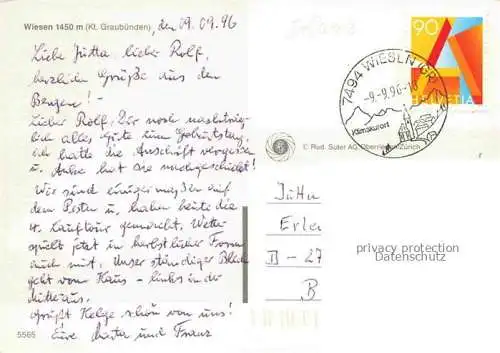 Wiesen 1450 m (Kt. Graubünden)
, den 09.09.96
Liebe Jutta, lieber Rolf,
herzliche Grüße aus den
Bergen! -
Lieber Rolf. Dir noch nachträg-
lich alles Gute zum Geburtstag,
ich hatte die Anschrift vergessen
u. Anke hat sie nachgeschickt!
Wir sind einigermaßen auf
dem Posten u. haben heute die
4. Lauftour gemacht. Wetter
spielt jetzt in herbstlicher Form
auch mit. Unser ständiger Blick
geht vom Haus - links in der
Mitte aus.
Grüßt Helge schön von uns!
Eure und Franz
5565
90
HELVETIA
7494 WIESEN (GR)
-9.-9.96-
Klimakurort
© Rud. Suter AG Oberrieden-Zürich
Jutta
B - 27
B
privacy protection
Datenschutz